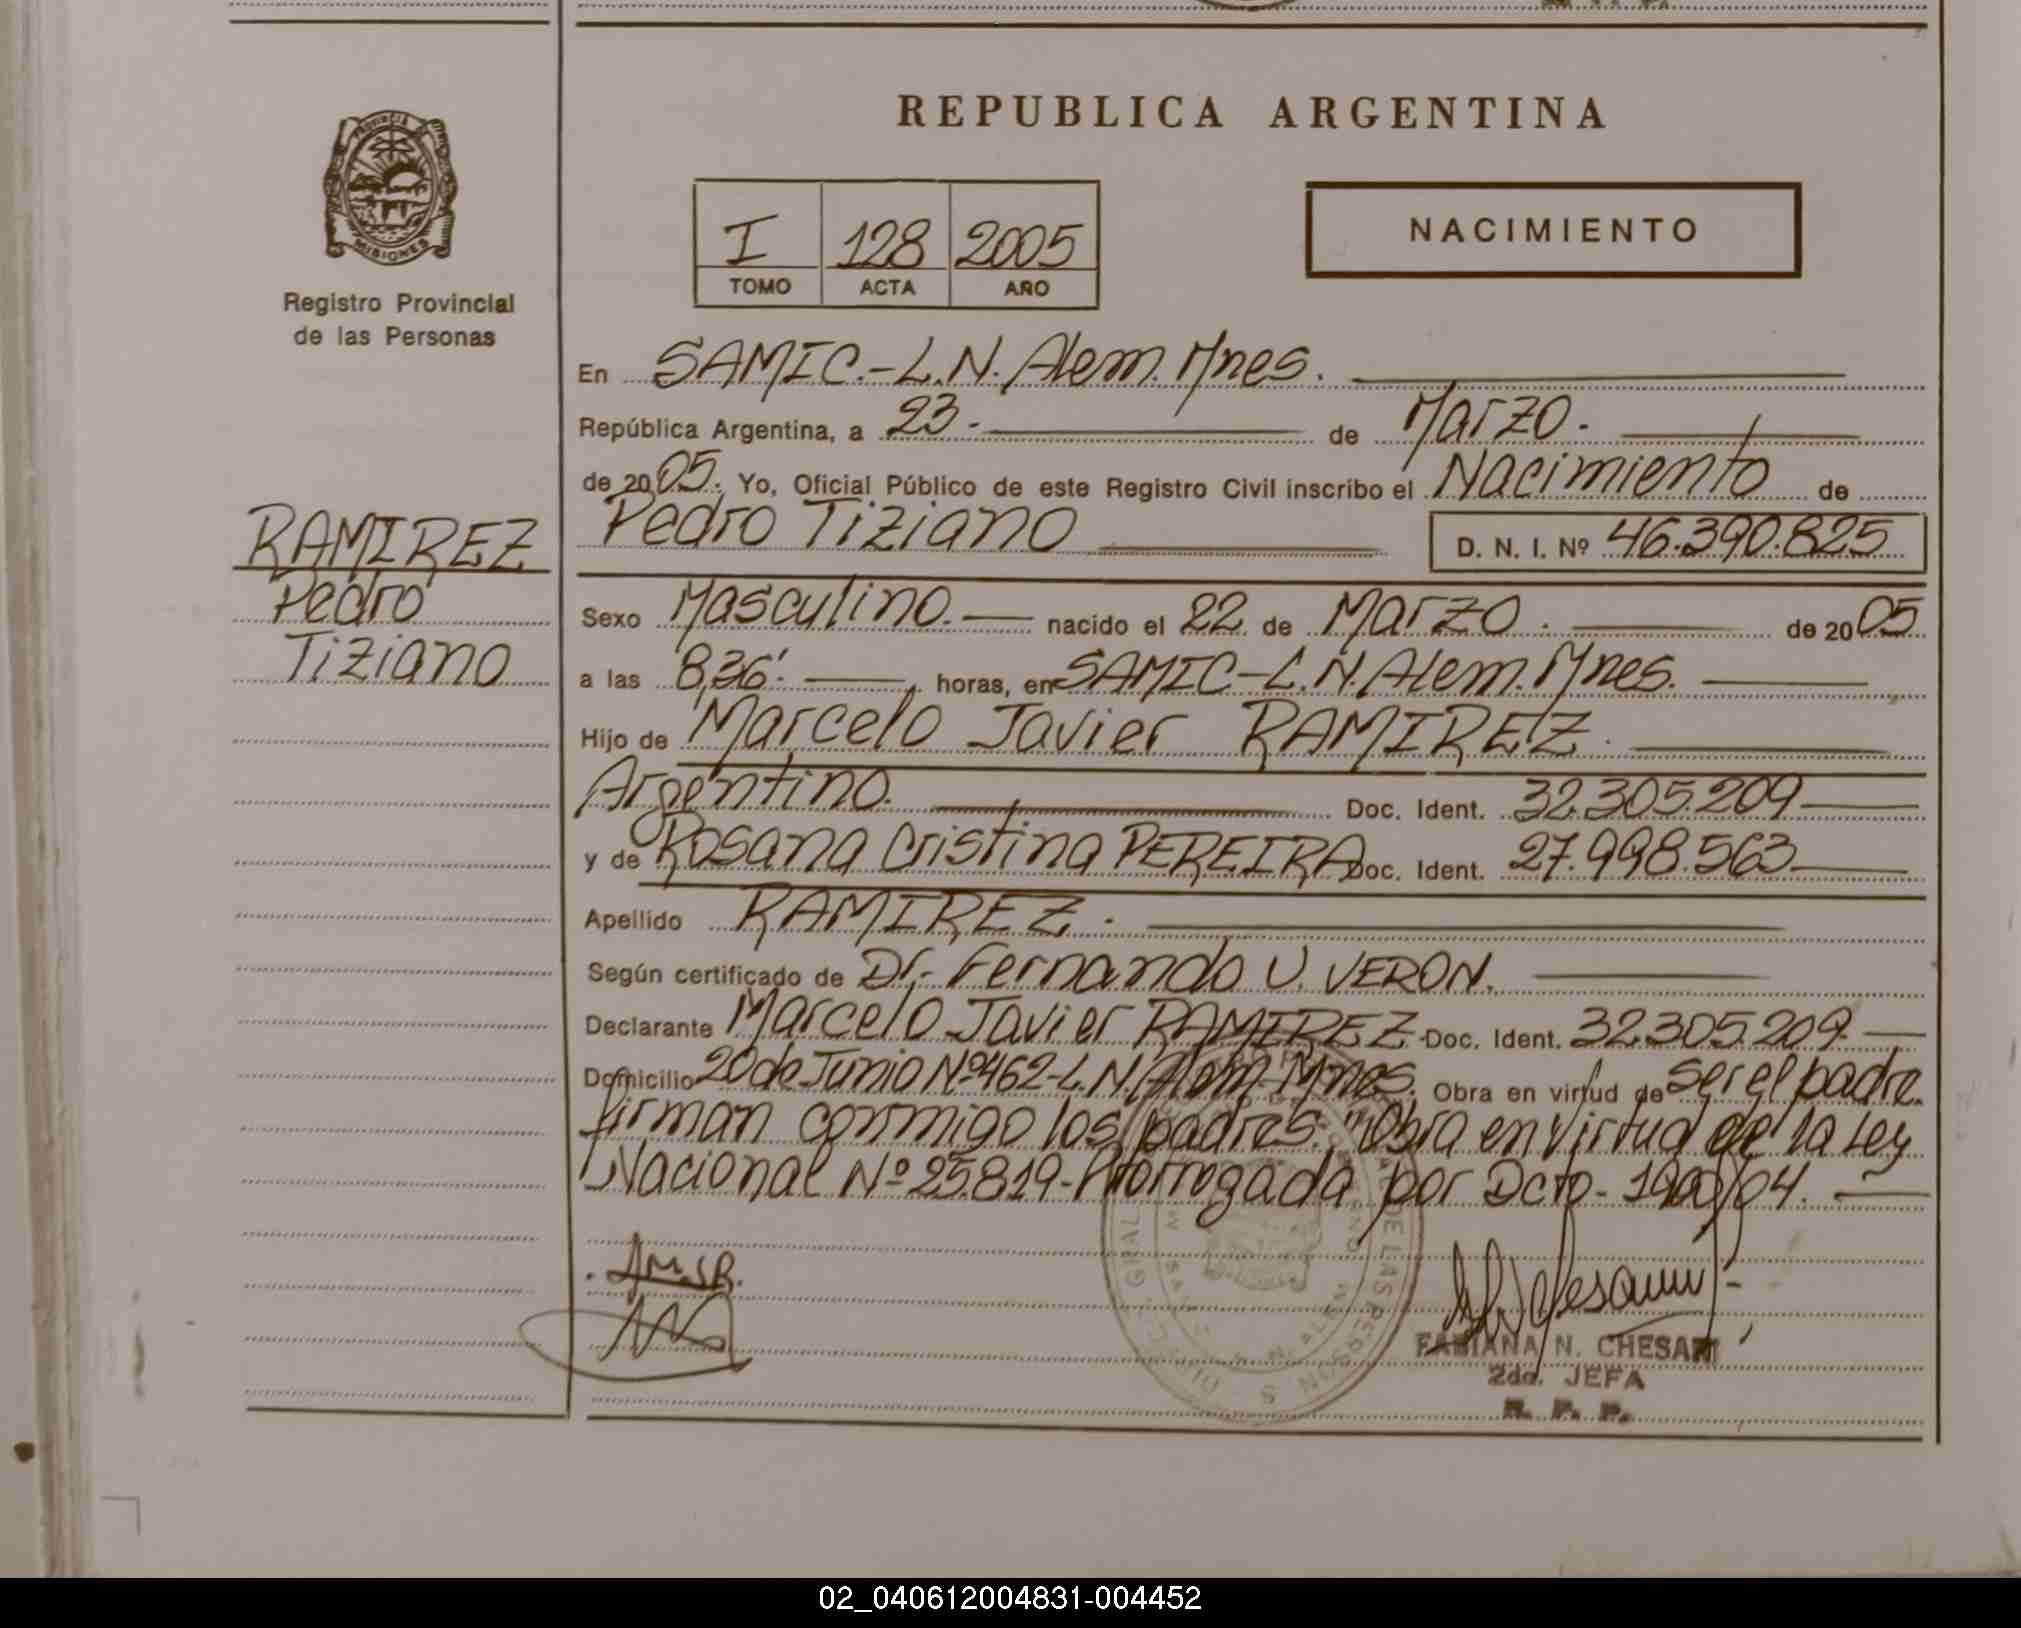 PROVINCIA DE
MISIONES
Registro Provincial
de las Personas
RAMIREZ
Pedro
Tiziano
REPUBLICA ARGENTINA
I 128 2005
TOMO ACTA AÑO
NACIMIENTO
En SAMIC.-L.N. Alem. Mnes.
República Argentina, a 23.- de Marzo.
de 2005. Yo, Oficial Público de este Registro Civil inscribo el Nacimiento de
Pedro Tiziano D. N. I. Nº 46.390.825
Sexo Masculino. nacido el 22 de Marzo. de 2005
a las 8,36'. horas, en SAMIC-L.N. Alem. Mnes.
Hijo de Marcelo Javier RAMIREZ.
Argentino. Doc. Ident. 32.305.209
y de Rosana Cristina PEREIRA Doc. Ident. 27.998.563
Apellido RAMIREZ.
Según certificado de Dr. Fernando U. VERON.
Declarante Marcelo Javier RAMIREZ. Doc. Ident. 32.305.209
Domicilio 20 de Junio Nº462-L.N. Alem-Mnes. Obra en virtud de Ser el padre.
firman conmigo los padres. "Obra en virtud de la Ley
Nacional Nº 25.819-Prorrogada por Dcto-
FABIANA N. CHESANI
2da. JEFA
R. P. P.
02_040612004831-004452